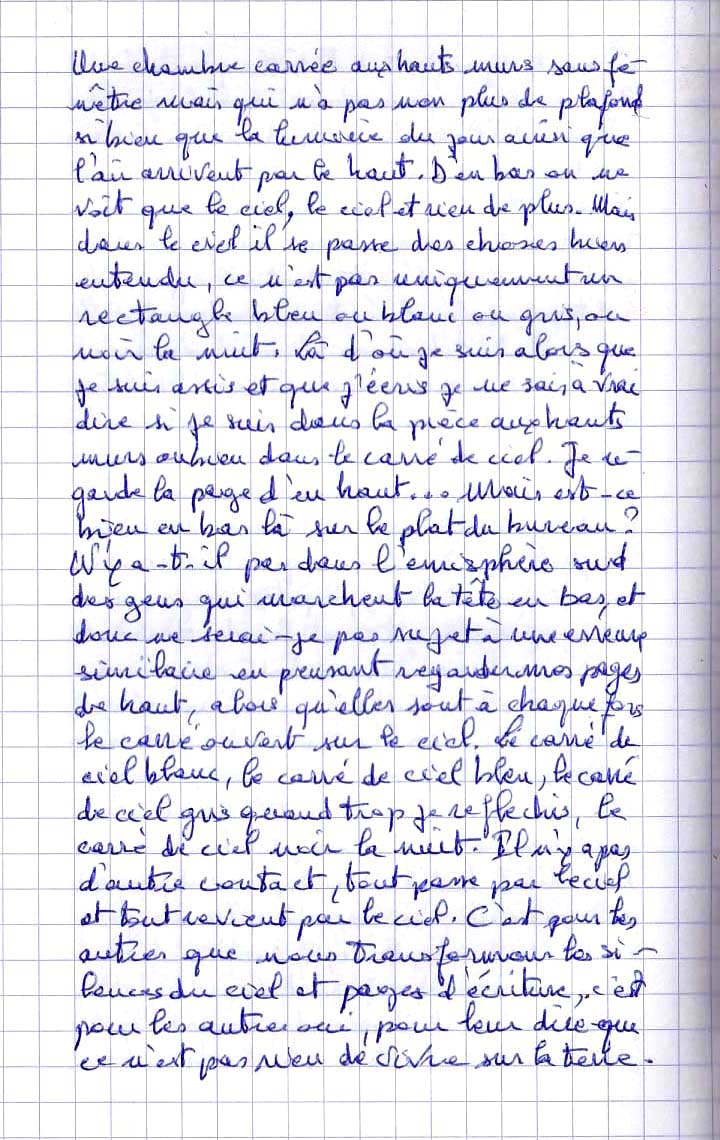 Une chambre carrée aux hauts murs sans fe-
nêtre mais qui n'a pas non plus de plafond
si bien que la lumière du jour ainsi que
l'air arrivent par le haut. D'en bas on ne
voit que le ciel, le ciel et rien de plus. Mais
dans le ciel il se passe des choses bien
entendu, ce n'est pas uniquement un
rectangle bleu ou blanc ou gris, ou
noir la nuit. Là d'où je suis alors que
je suis assis et que j'écris je ne sais à vrai
dire si je suis dans la pièce aux hauts
murs ou bien dans le carré de ciel. Je re-
garde la page d'en haut... Mais est-ce
bien en bas là sur le plat du bureau?
N'y a-t-il pas dans l'emisphère sud
des gens qui marchent la tête en bas, et
donc ne serai-je pas sujet à une erreur
similaire en pensant regarder mes pages
de haut, alors qu'elles sont à chaque fois
le carré ouvert sur le ciel. Le carré de
ciel blanc, le carré de ciel bleu, le carré
de ciel gris quand trop je reflechis, le
carré de ciel noir la nuit. Il n'y a pas
d'autre contact, tout passe par le ciel
et tout revient par le ciel. C'est pour les
autres que nous transformons les si-
lences du ciel et pages d'écriture, c'est
pour les autres oui, pour leur dire que
ce n'est pas rien de vivre sur la terre.